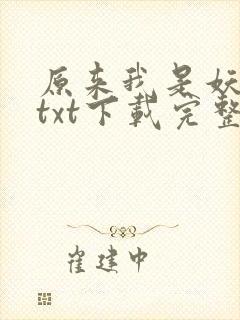 原来我是妖
txt下载完整
崔建中